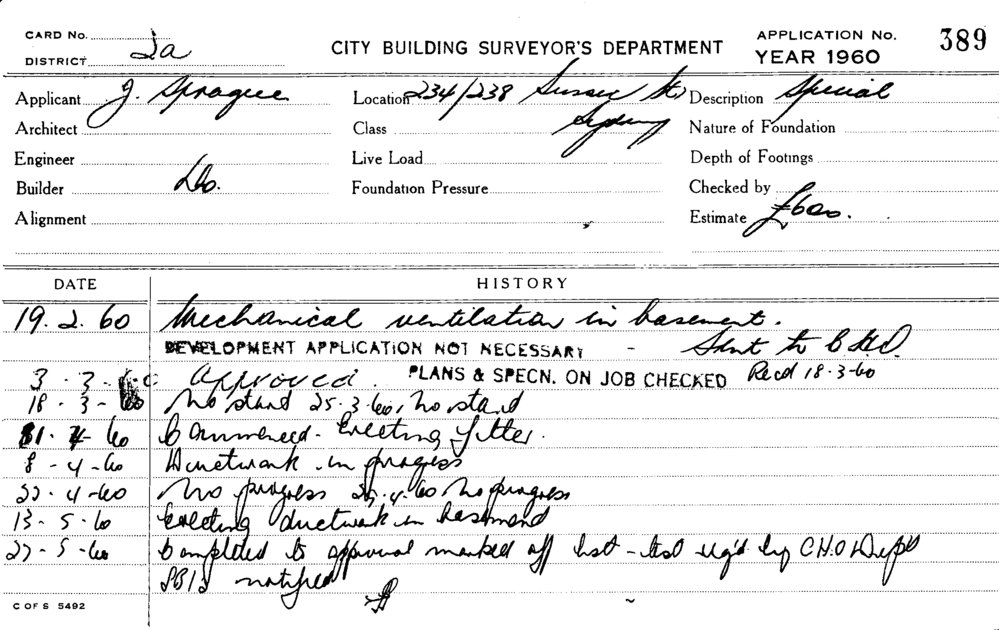 CARD No.
DISTRICT 2a
CITY BUILDING SURVEYOR'S DEPARTMENT
APPLICATION No. 389
YEAR 1960
Applicant J. Sprague
Location 234/238 Sussex St,
Description Special
Architect
Class Sydney
Nature of Foundation
Engineer
Live Load
Depth of Footings
Builder Do.
Foundation Pressure
Checked by
Alignment
Estimate £600.
DATE HISTORY
19.2.60 Mechanical ventilation in basement.
DEVELOPMENT APPLICATION NOT NECESSARY - Sent to C.H.O.
3-3-60 Approved. PLANS & SPECN. ON JOB CHECKED Recd 18-3-60
18-3-60 No start 25.3.60, No start
4-60 Commenced - Erecting filter.
8-4-60 Ductwork in progress
22-4-60 No progress 29.4.60 No progress
13-5-60 Erecting ductwork in basement
27-5-60 Completed to approval marked off list - test by C.H.O Dept
notified
C OF S 5492